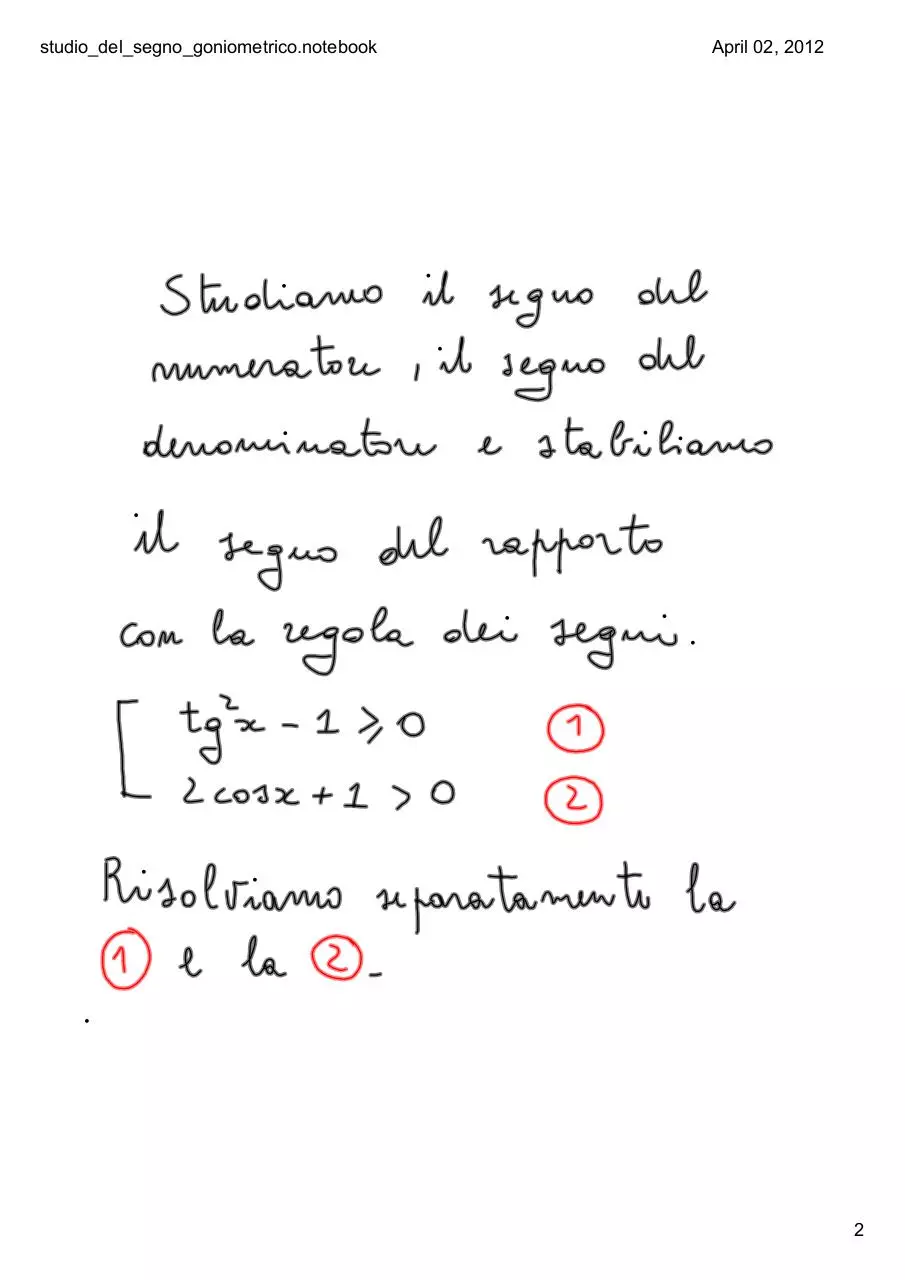 studio_del_segno_goniometrico.notebook April 02, 2012
Studiamo il segno del
numeratore, il segno del
denominatore e stabiliamo
il segno del rapporto
con la regola dei segni.
tg²x - 1 ⩾ 0 ①
2 cosx + 1 > 0 ②
Risolviamo separatamente la
① e la ②.
2